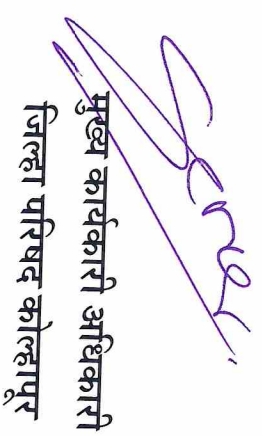 मुख्य कार्यकारी अधिकारी
जिल्हा परिषद कोल्हापूर